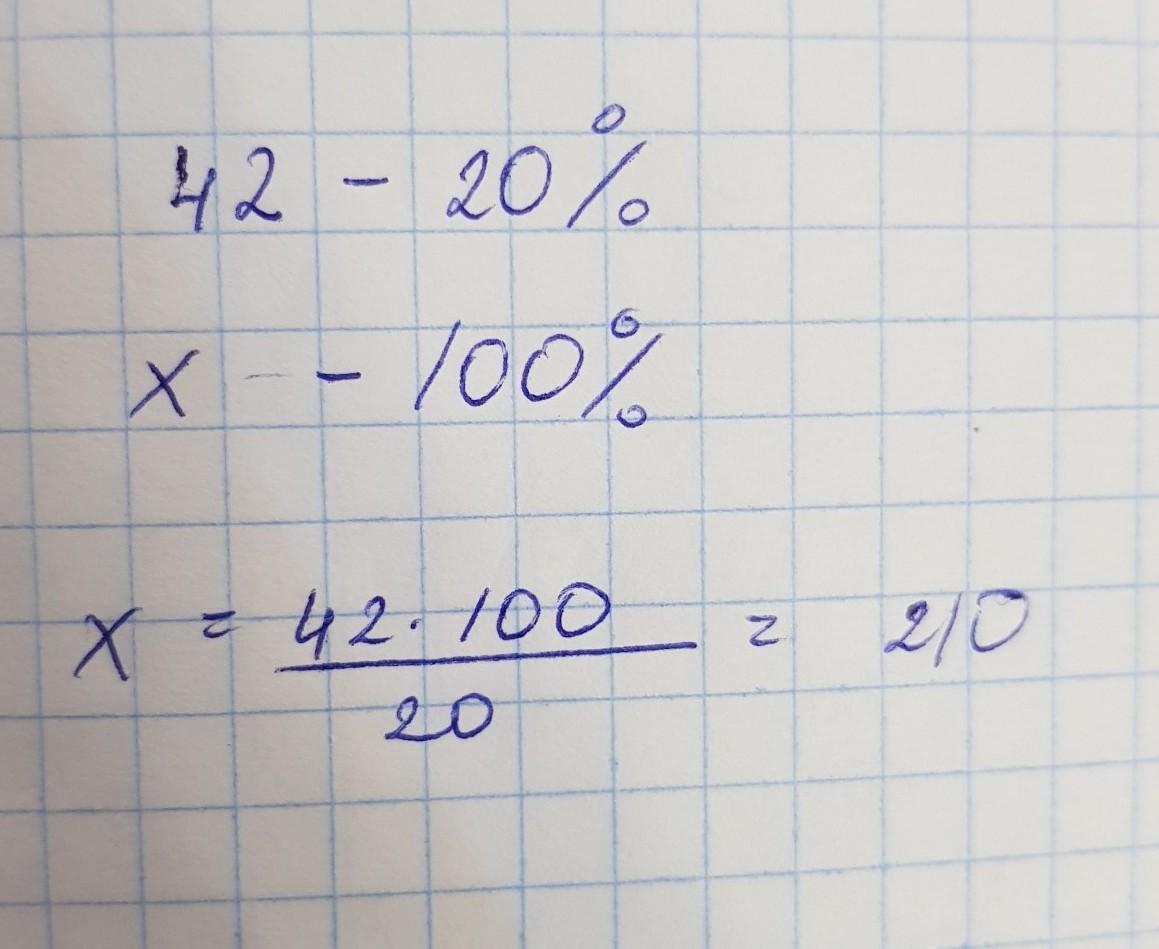 42 - 20%
x - 100%
x = 42 · 100 / 20 = 210